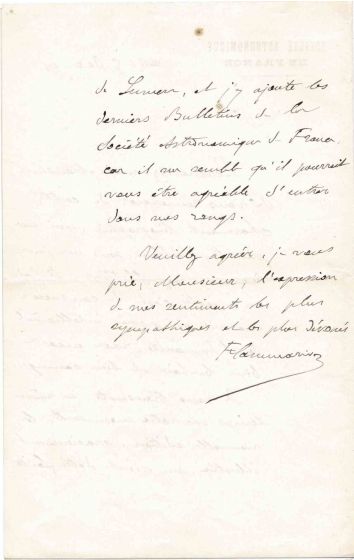 de Lumen, et j'y ajoute les
derniers Bulletins de la
Société Astronomique de France
car il me semble qu'il pourrait
vous être agréable d'entrer
dans nos rangs.
Veuillez agréer, je vous
prie, Monsieur, l'expression
de mes sentiments les plus
sympathiques et les plus dévoués
Flammarion